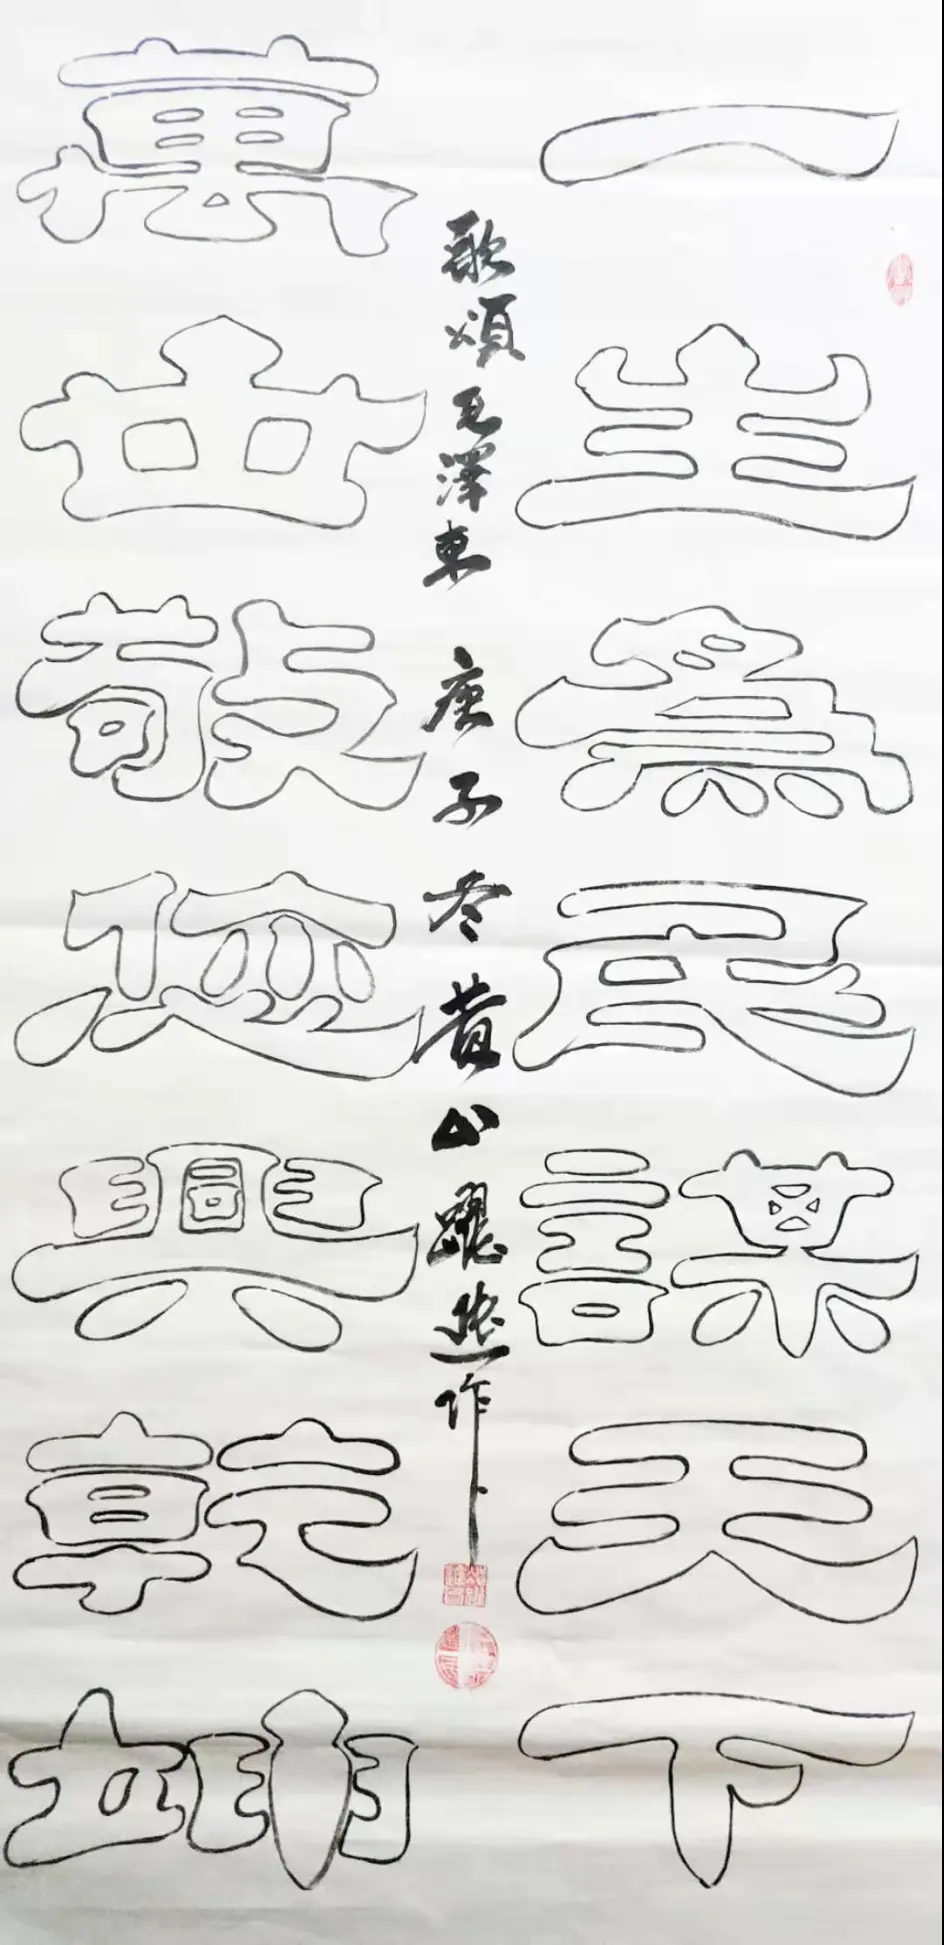 一生爲民謀天下
萬世敬您興乾坤
歌頌毛澤東 庚子冬黄山躍進作